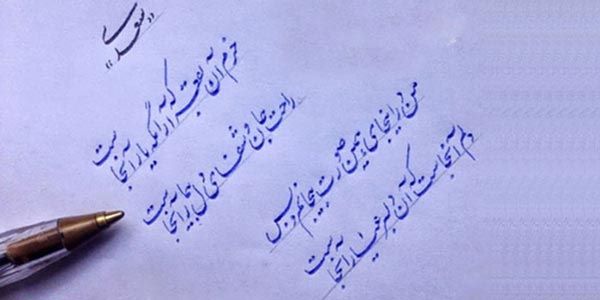 «سعدی»
خرم آن بقعه که آرامگه یار آنجاست
راحت جان و شفای دل بیمار آنجاست
من در اینجای همین صورت بیجانم و بس
دلم آنجاست که آن دلبر عیار آنجاست